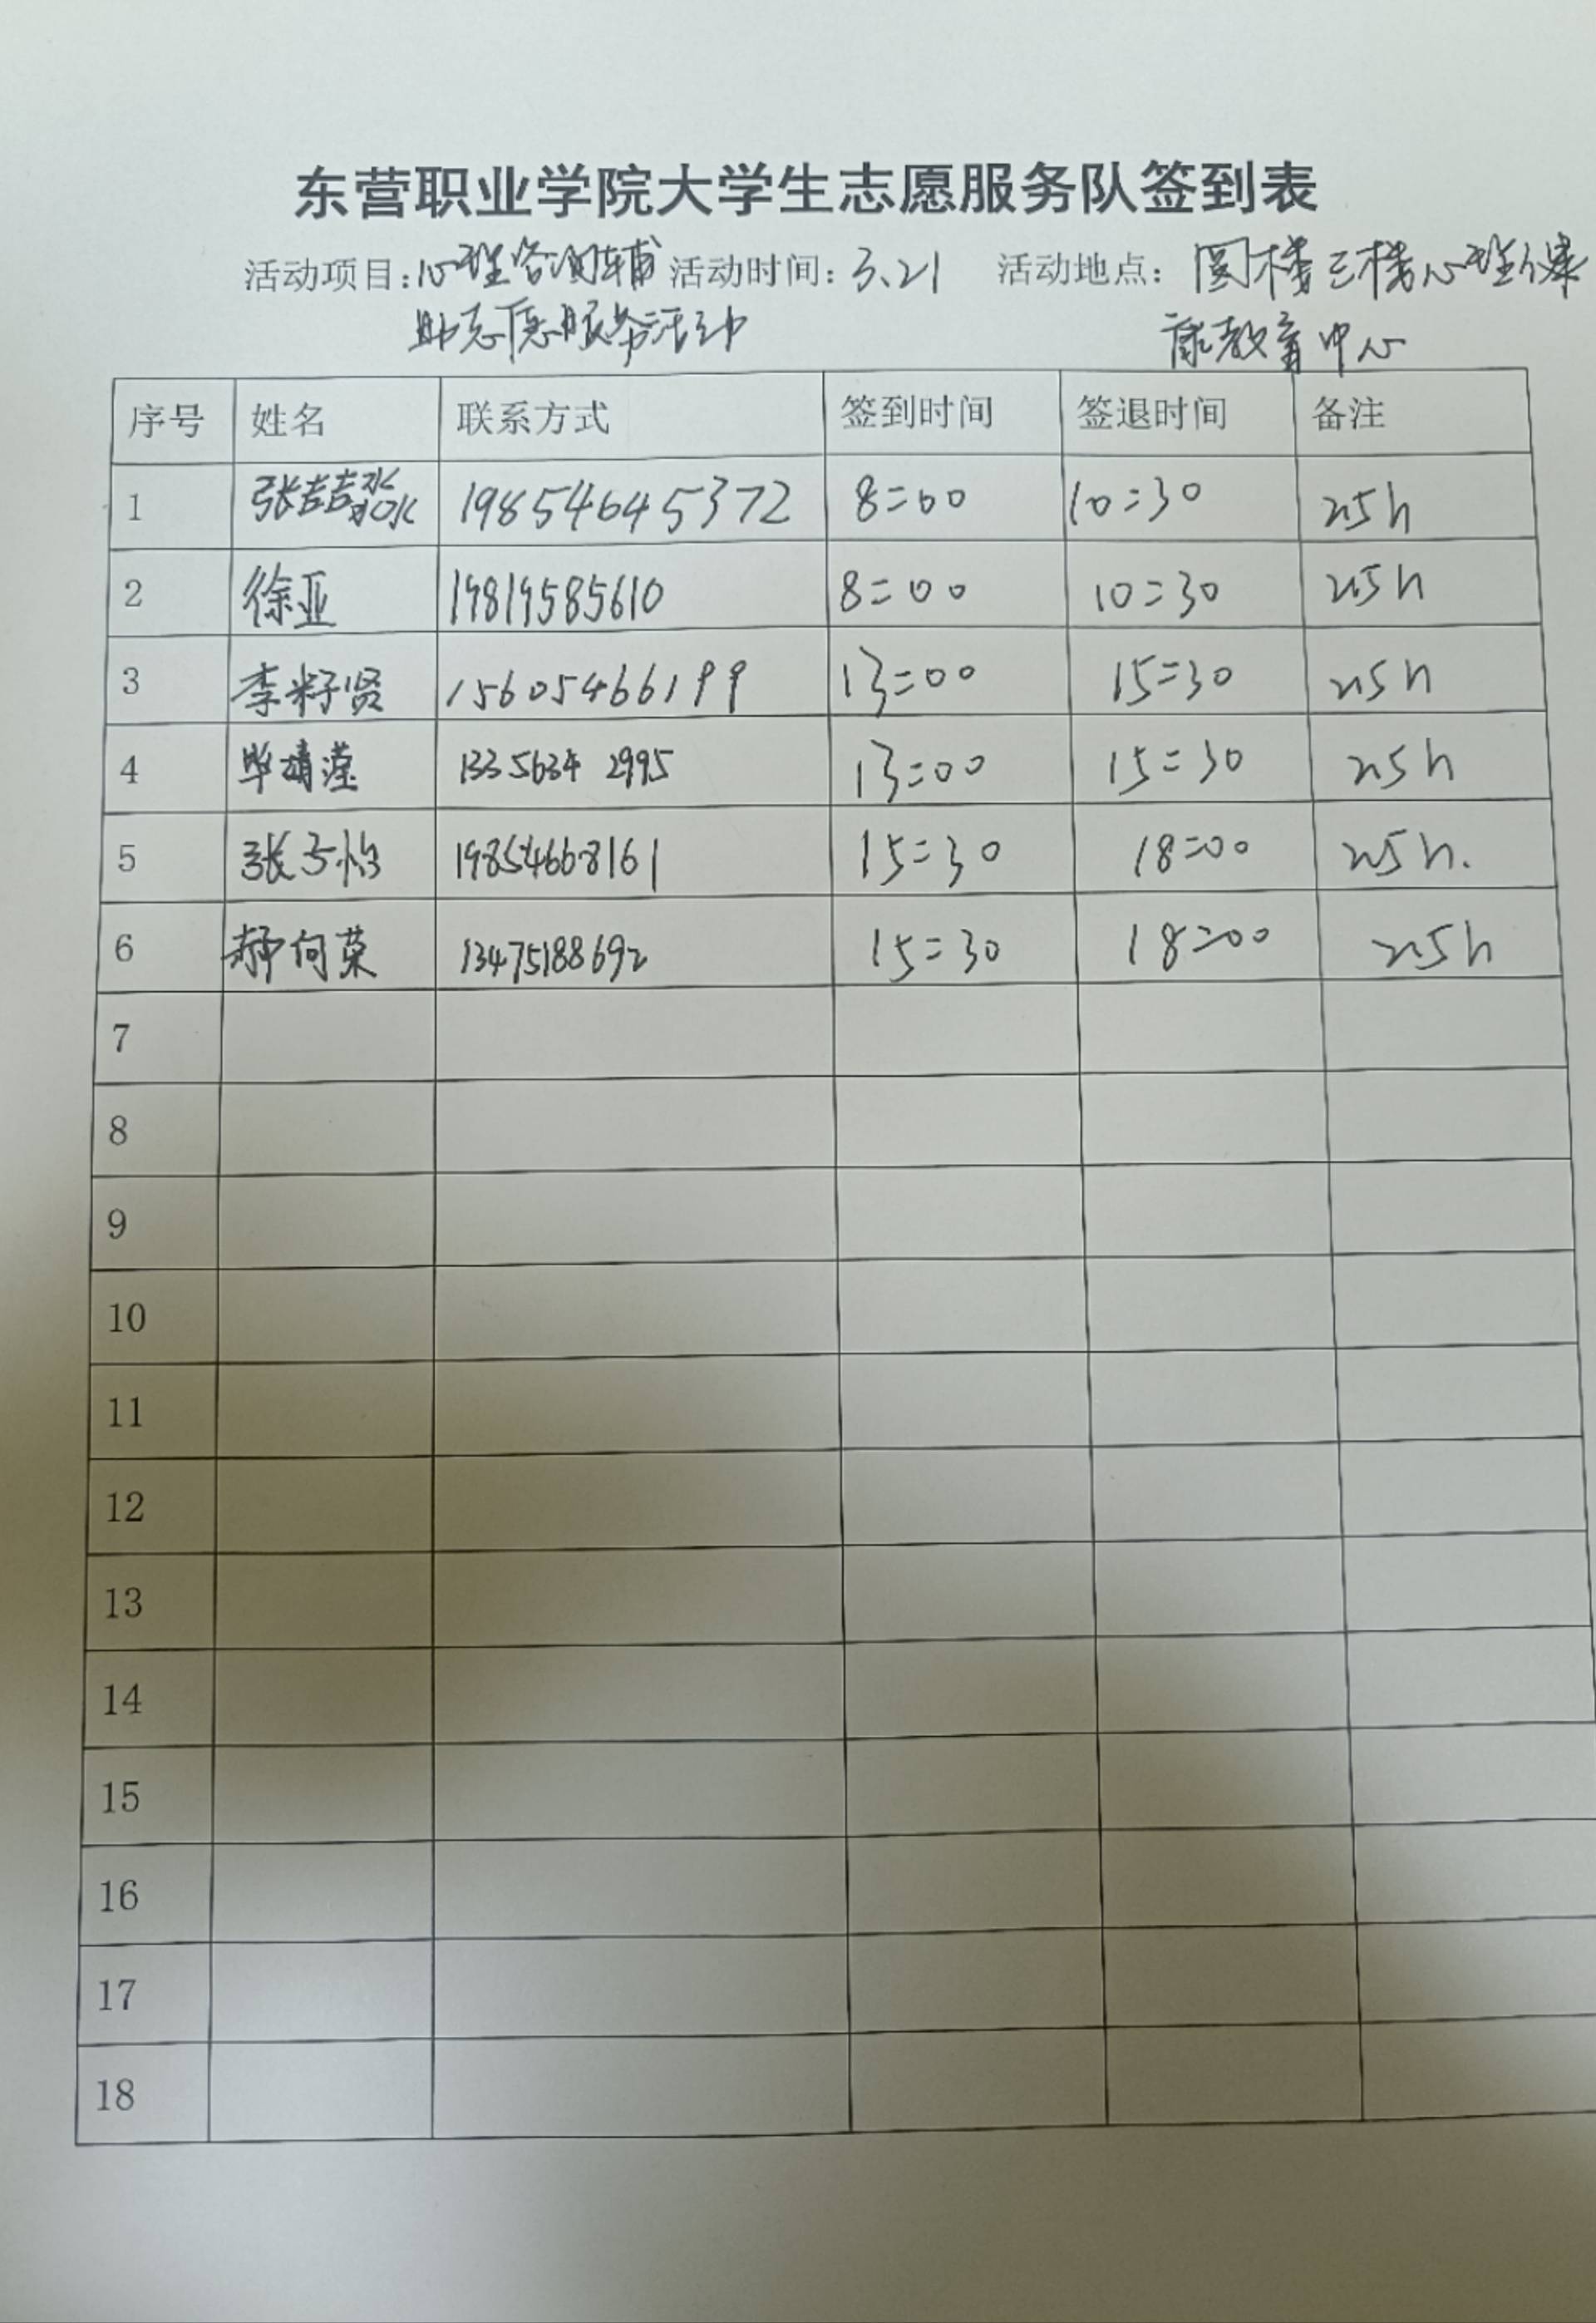 东营职业学院大学生志愿服务队签到表
活动项目:心理咨询辅 活动时间:3.21 活动地点:图楼三楼心理健
助志愿服务活动 康教育中心
序号 姓名 联系方式 签到时间 签退时间 备注
1 张喆淼 19854645372 8:00 10:30 2.5h
2 徐亚 19819585610 8:00 10:30 2.5h
3 李籽贤 15605466199 13:00 15:30 2.5h
4 毕靖滢 13356342995 13:00 15:30 2.5h
5 张子怡 19854668161 15:30 18:00 2.5h.
6 向荣 13475188692 15:30 18:00 2.5h
7
8
9
10
11
12
13
14
15
16
17
18